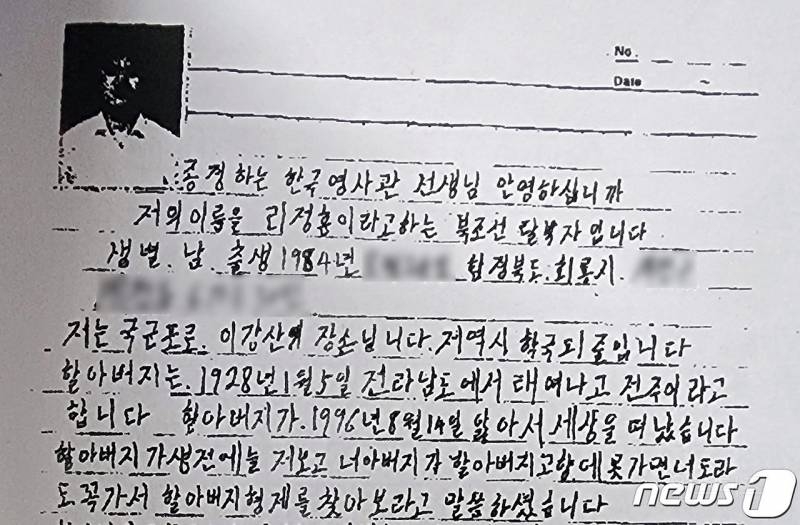 No.
Date
존경하는 한국영사관 선생님 안영하십니까
저의이름을 리정훈이라고하는 북조선 탈북자입니다
생별 남 출생 1984년 함경북도 회룡시
저는 국군포로 이강산의 장손님니다. 제역시 한국의 입니다
할아버지는 1928년 1월 5일 전라남도에서 태여나고 전주이라고
합니다 할아버지가 1996년 8월 14일 앓아서 세상을 떠났습니다
할아버지가생전에늘 저보고 너아버지가 할아버지고향에못가면너도라
도꼭가서 할아버지형제를 찾아보라고 말씀하셨습니다
news1